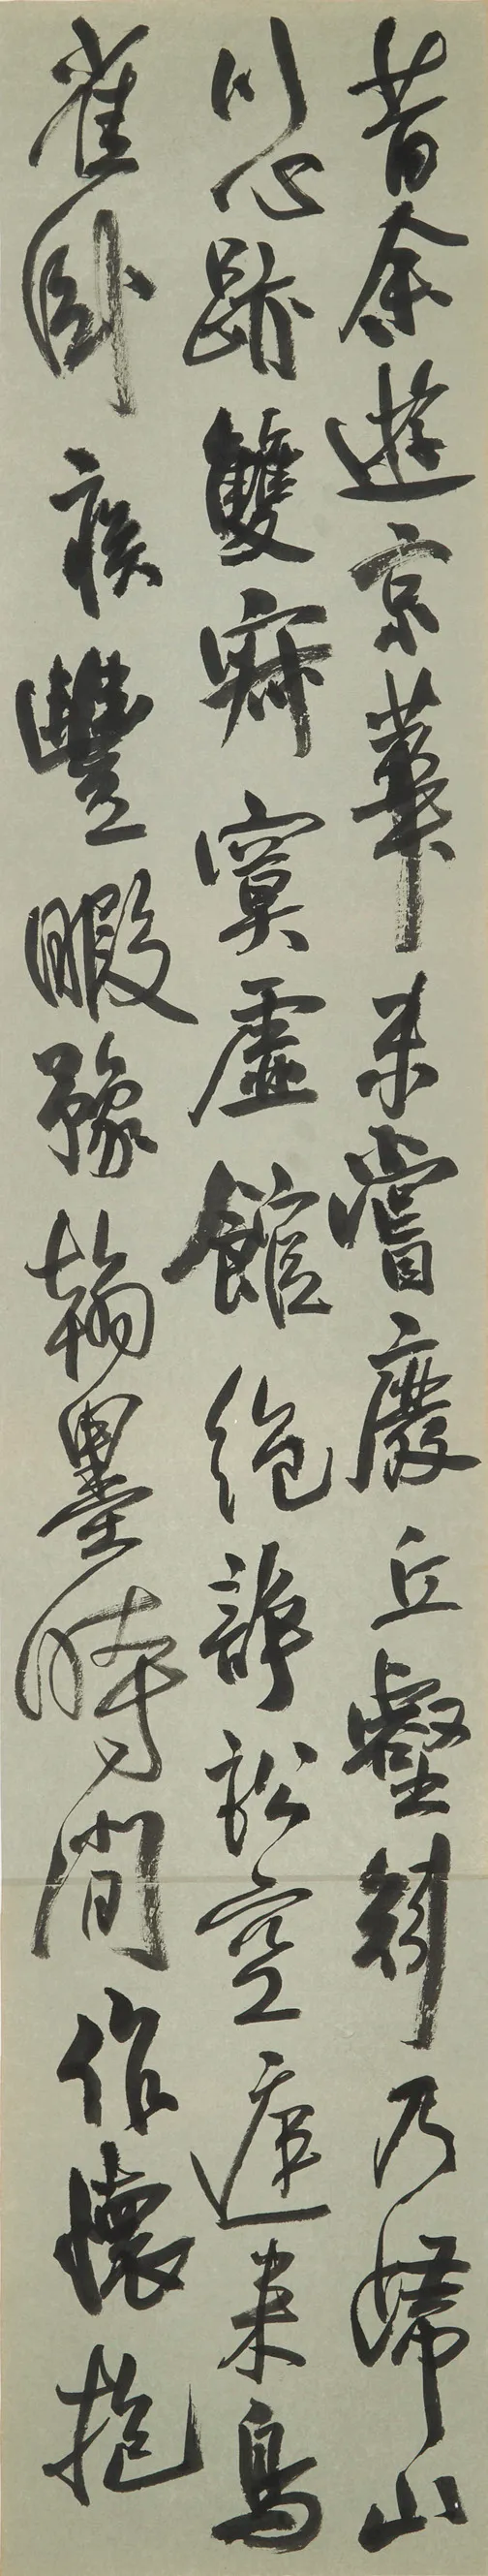 昔余遊京華未嘗廢丘壑矧乃歸山
川心跡雙寂寞虛館絕諍訟空庭来鳥
雀卧疾豐暇豫翰墨時間作懷抱